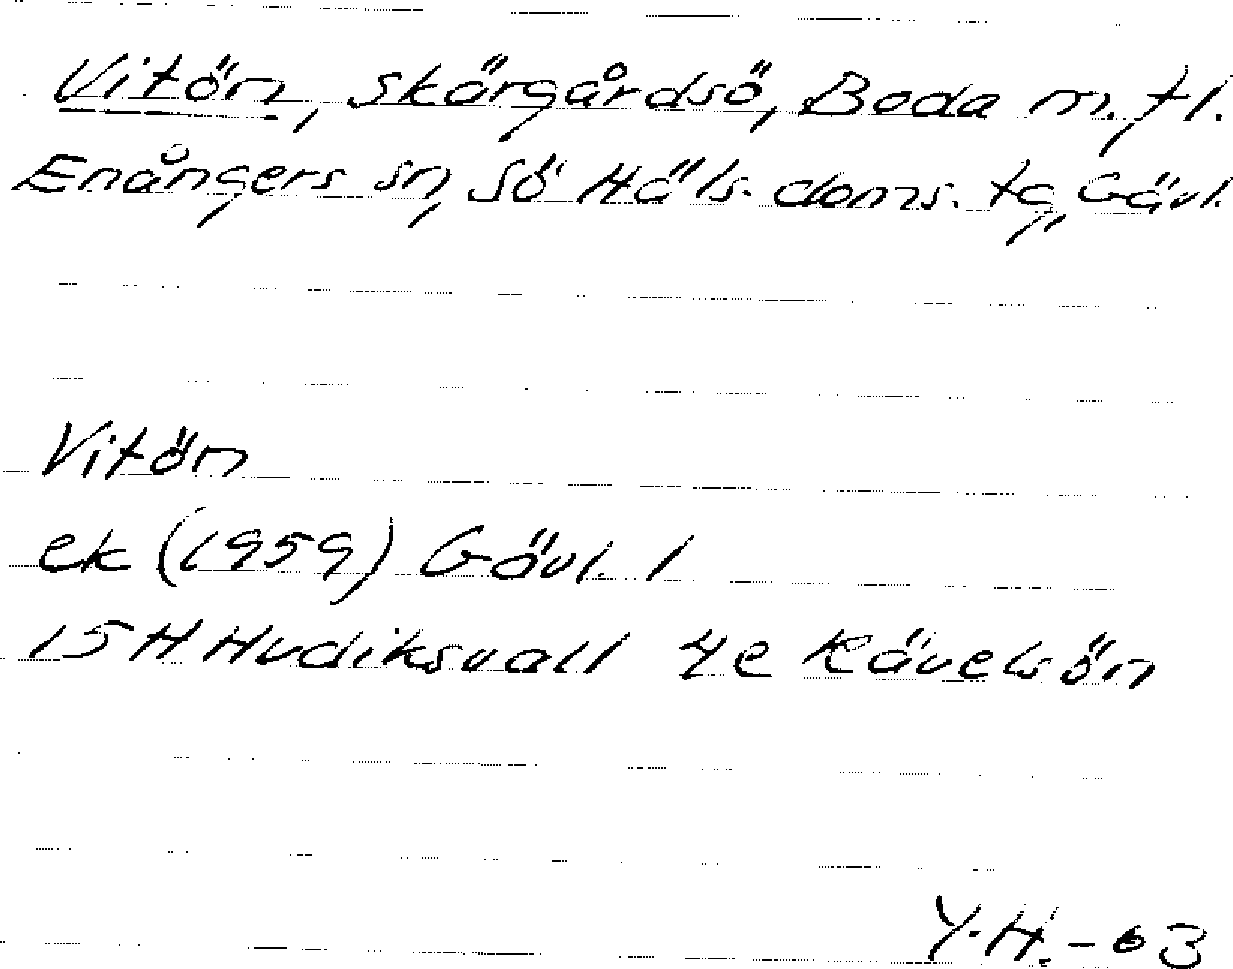 Vitön, skärgårdsö, Boda m. fl.
Enångers sn, Sö Häls. doms. tg, Gävl.
Vitön
ek (1959) Gävl. l
15 H Hudiksvall 4e Kävelsön
Y.H.-63